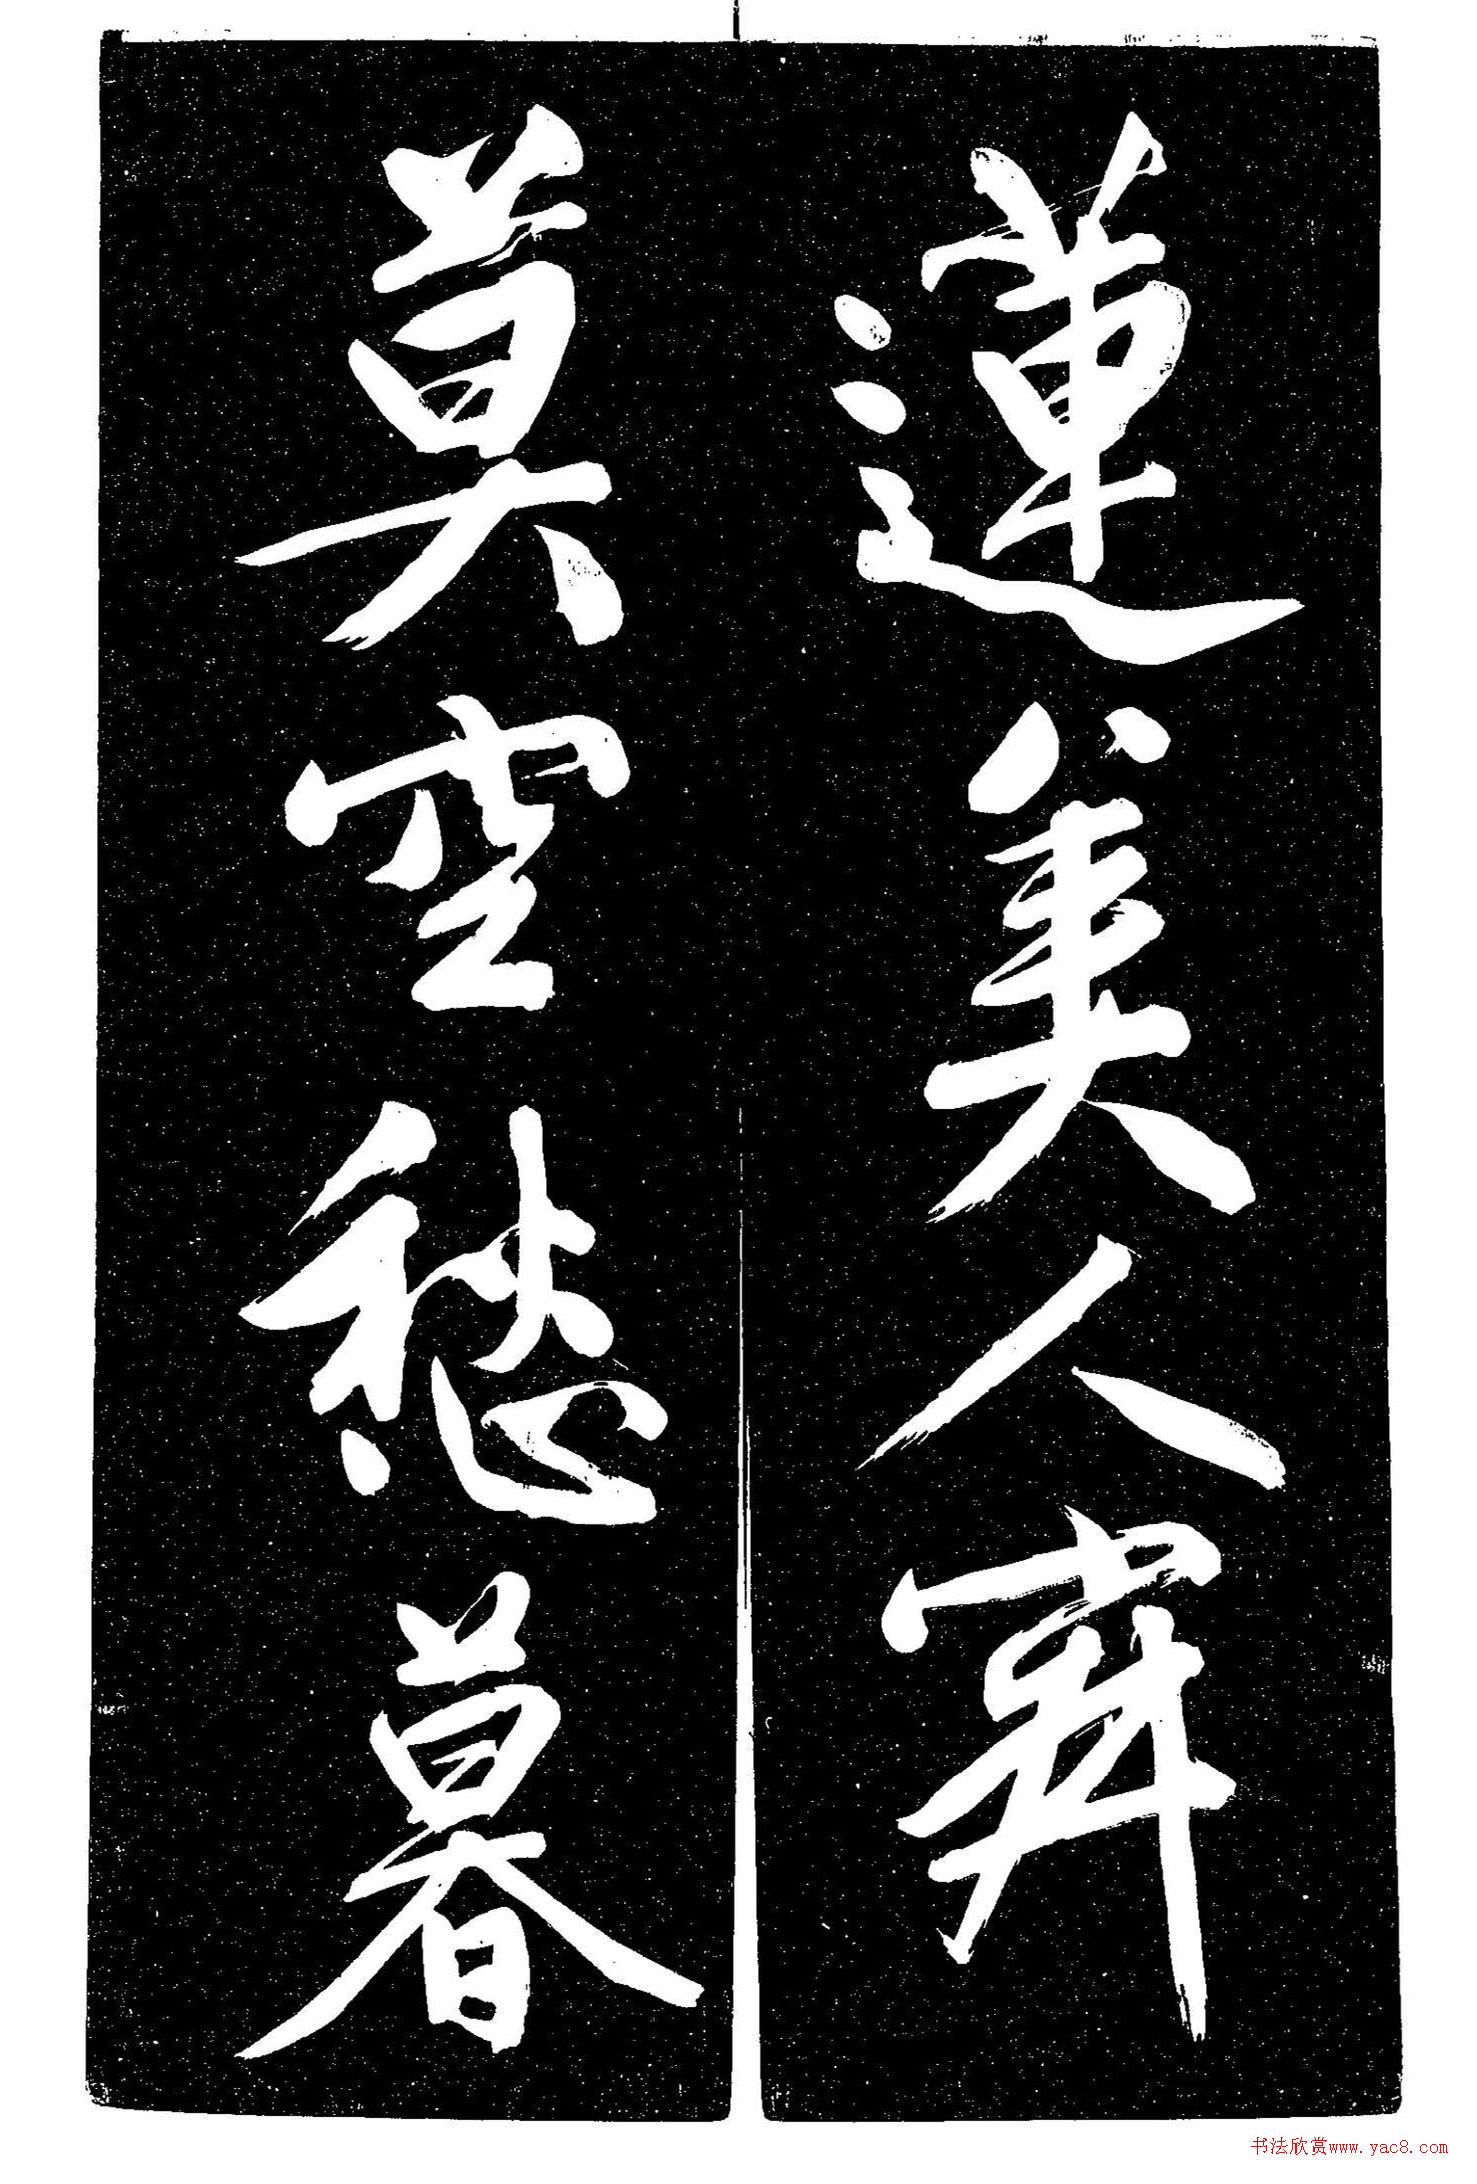 蓮美人
莫空愁暮
书法欣赏www.yac8.com